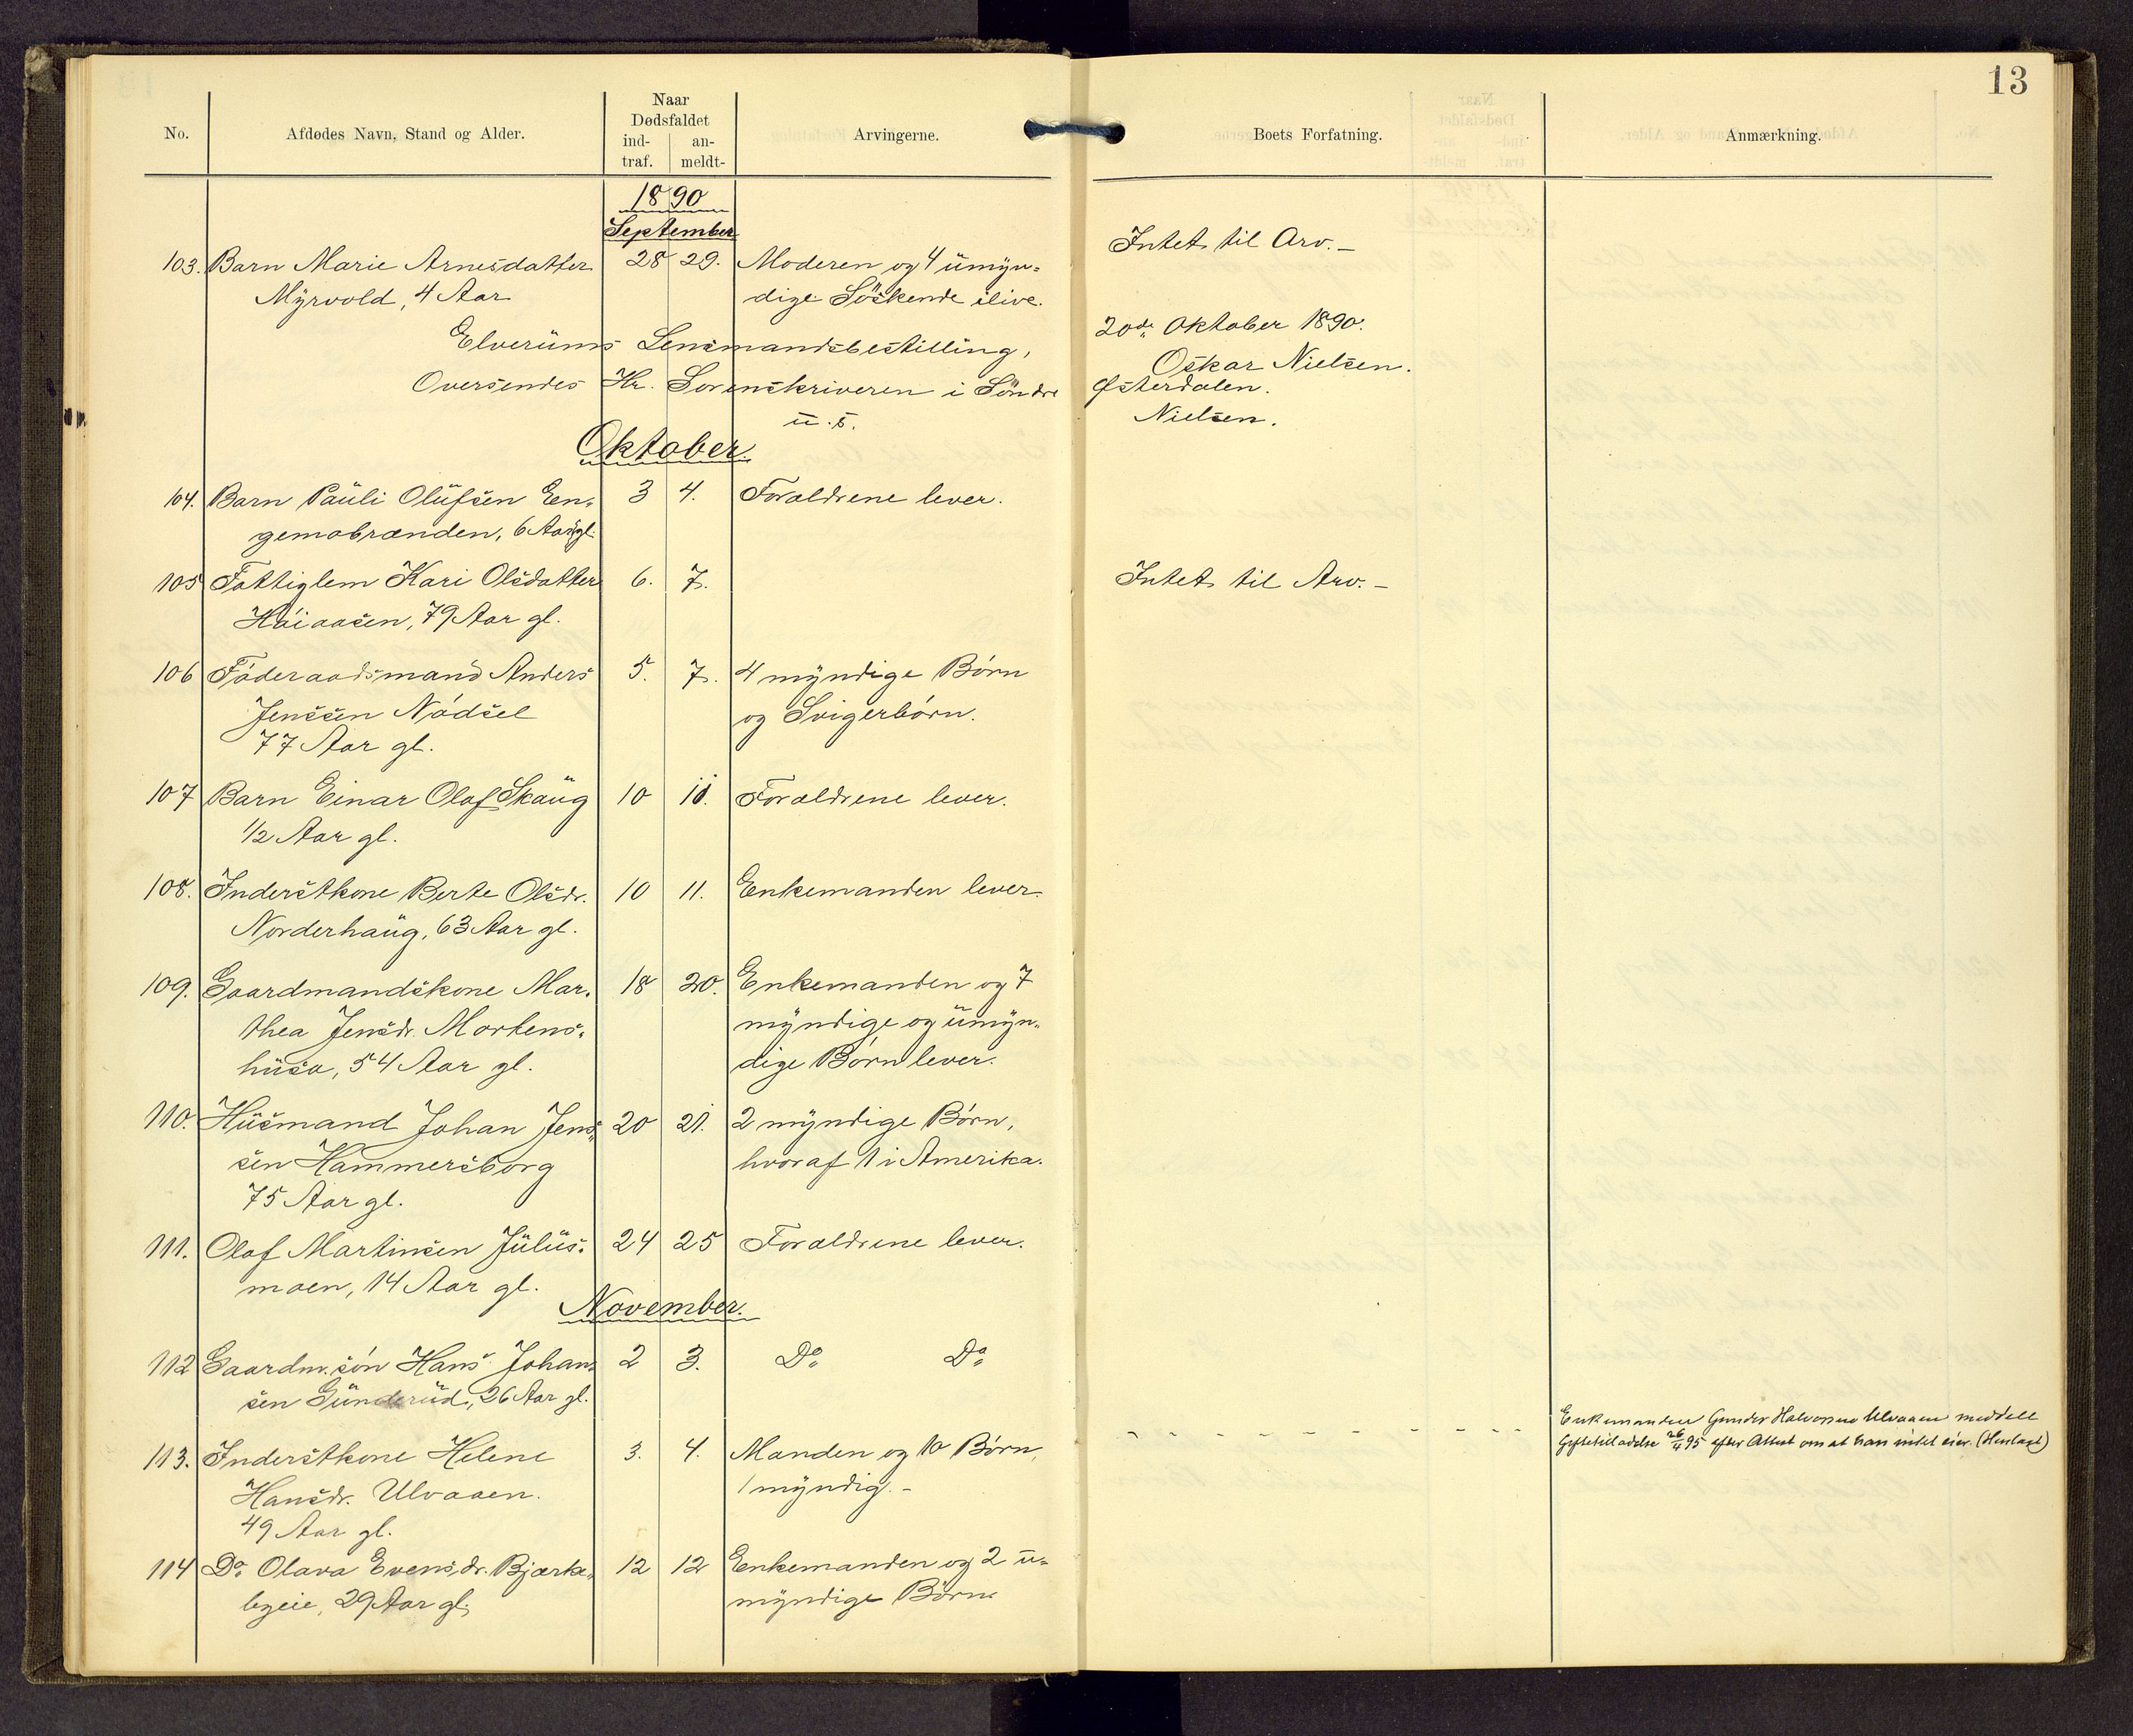 13
No.
Afdødes Navn, Stand og Alder.
Naar
Dødsfaldet
ind-
traf.
an-
meldt-
Arvingerne.
Boets Forfatning.
Anmærkning.
1890
September
103. Barn Marie Arnesdatter 28 29. Moderen og 4 umyn- Intet til Arv. –
Myrvold, 4 Aar dige Söskende ilive.
Elverums Lensmandsbestilling, 20de Oktober 1890.
Oskar Nielsen.
Oversendes Hr. Sorenskriveren i Söndre Østerdalen.
u. s. Nielsen.
Oktober.
104. Barn Pauli Olufsen En- 3 4. Forældrene lever.
gemobrænden, 6 Aar gl.
105 Fattiglem Kari Olsdatter 6. 7. Intet til Arv. –
Höiaasen, 79 Aar gl.
106 Föderaadsmand Anders 5. 7. 4 myndige Börn
Jenssen Nödsel og Svigerbörn.
77 Aar gl.
107 Barn Einar Olaf Skaug 10 11. Forældrene lever.
1/2 Aar gl.
108. Inderstkone Berte Olsdr. 10 11. Enkemanden lever.
Norderhaug, 63 Aar gl.
109. Gaardmandskone Mar- 18 20. Enkemanden og 7
thea Jensdr. Mortens- myndige og umyn-
husa, 54 Aar gl. dige Börn lever.
110. Husmand Johan Jens- 20 21. 2 myndige Börn,
sen Hammersborg hvoraf 1 i Amerika.
75 Aar gl.
111. Olaf Martinsen Julus- 24 25 Forældrene lever.
moen, 14 Aar gl.
November.
112 Gaardm.sön Hans Johan- 2 3. Do Do
sen Gunderud, 26 Aar gl.
Enkemanden Gunder Halvorsen Ulvaaen meddelt
Giftetilladelse 26/4 95 efter Attest om at han intet eier. (Henlagt)
113. Inderstkone Helene 3. 4. Manden og 10 Börn,
Hansdr. Ulvaaen. 1 myndig. –
49 Aar gl.
114 Do Olava Evensdr. Bjærke- 12 12 Enkemanden og 2 u-
byeie, 29 Aar gl. myndige Börn